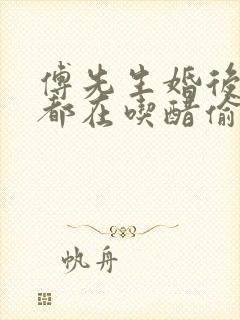 傅先生婚後
都在喫醋偷
帆舟